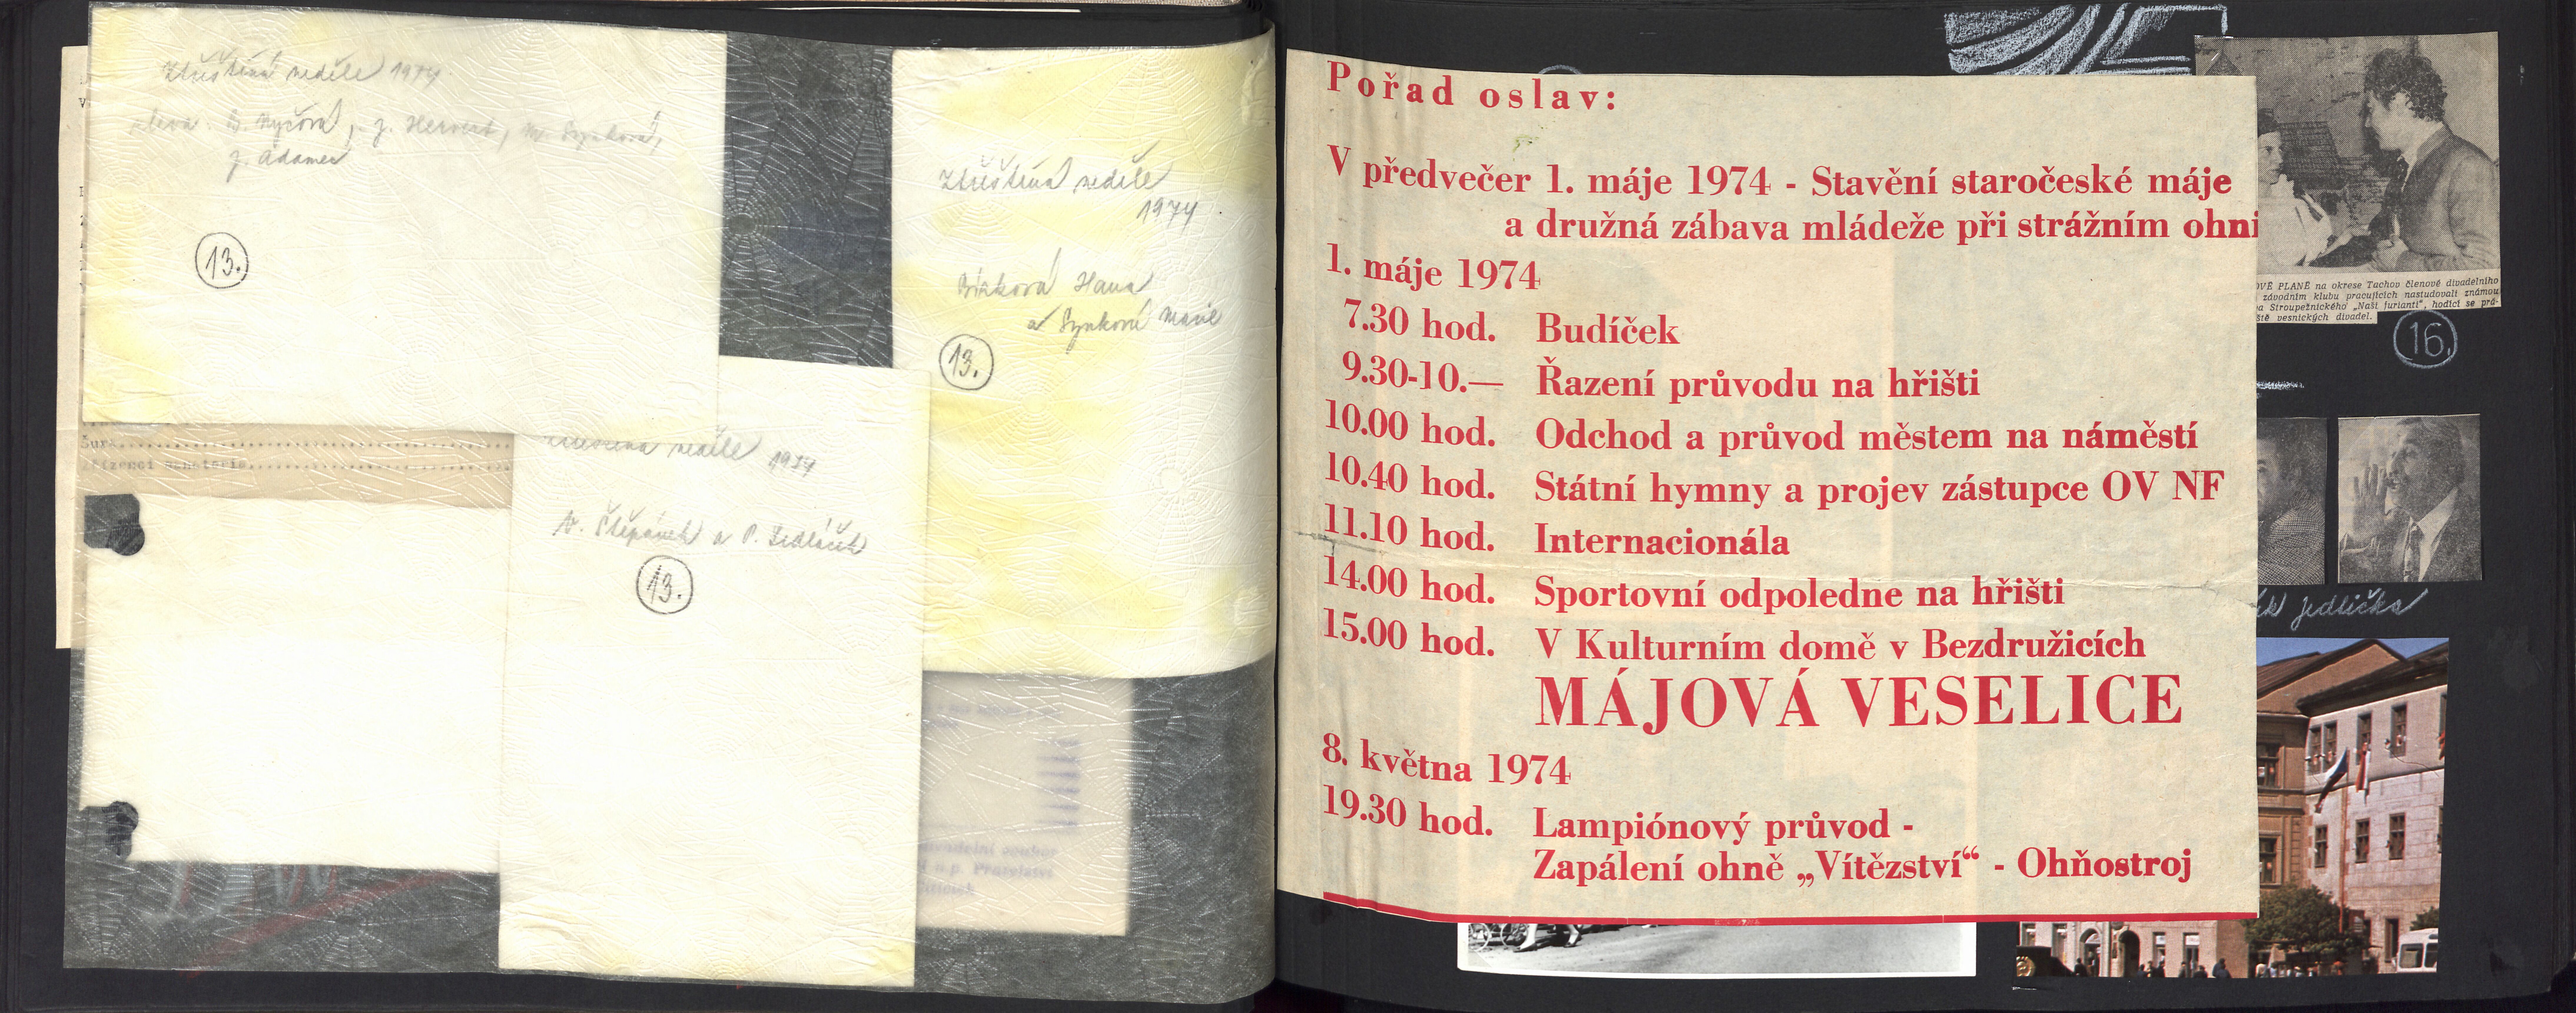 Zbuštěná neděle 1974.
zleva. B. Nyčová, J. Hervert, M. Synková,
J. Adamec
13.
Zbuštěná neděle
1974
Hana
a Synková Marie
13.
neděle 1974
V. Štěpánek a P. Sedláček
13.
Pořad oslav:
V předvečer 1. máje 1974 - Stavění staročeské máje
a družná zábava mládeže při strážním ohni
1. máje 1974
7.30 hod. Budíček
9.30-10.— Řazení průvodu na hřišti
10.00 hod. Odchod a průvod městem na náměstí
10.40 hod. Státní hymny a projev zástupce OV NF
11.10 hod. Internacionála
14.00 hod. Sportovní odpoledne na hřišti
15.00 hod. V Kulturním domě v Bezdružicích
MÁJOVÁ VESELICE
8. května 1974
19.30 hod. Lampiónový průvod -
Zapálení ohně „Vítězství“ - Ohňostroj
OVÉ PLANÉ na okrese Tachov členové divadelního
závodním klubu pracujících nastudovali známou
ra Stroupežnického „Naši furianti“, hodící se prá-
ště vesnických divadel.
16.
ík Jedlička